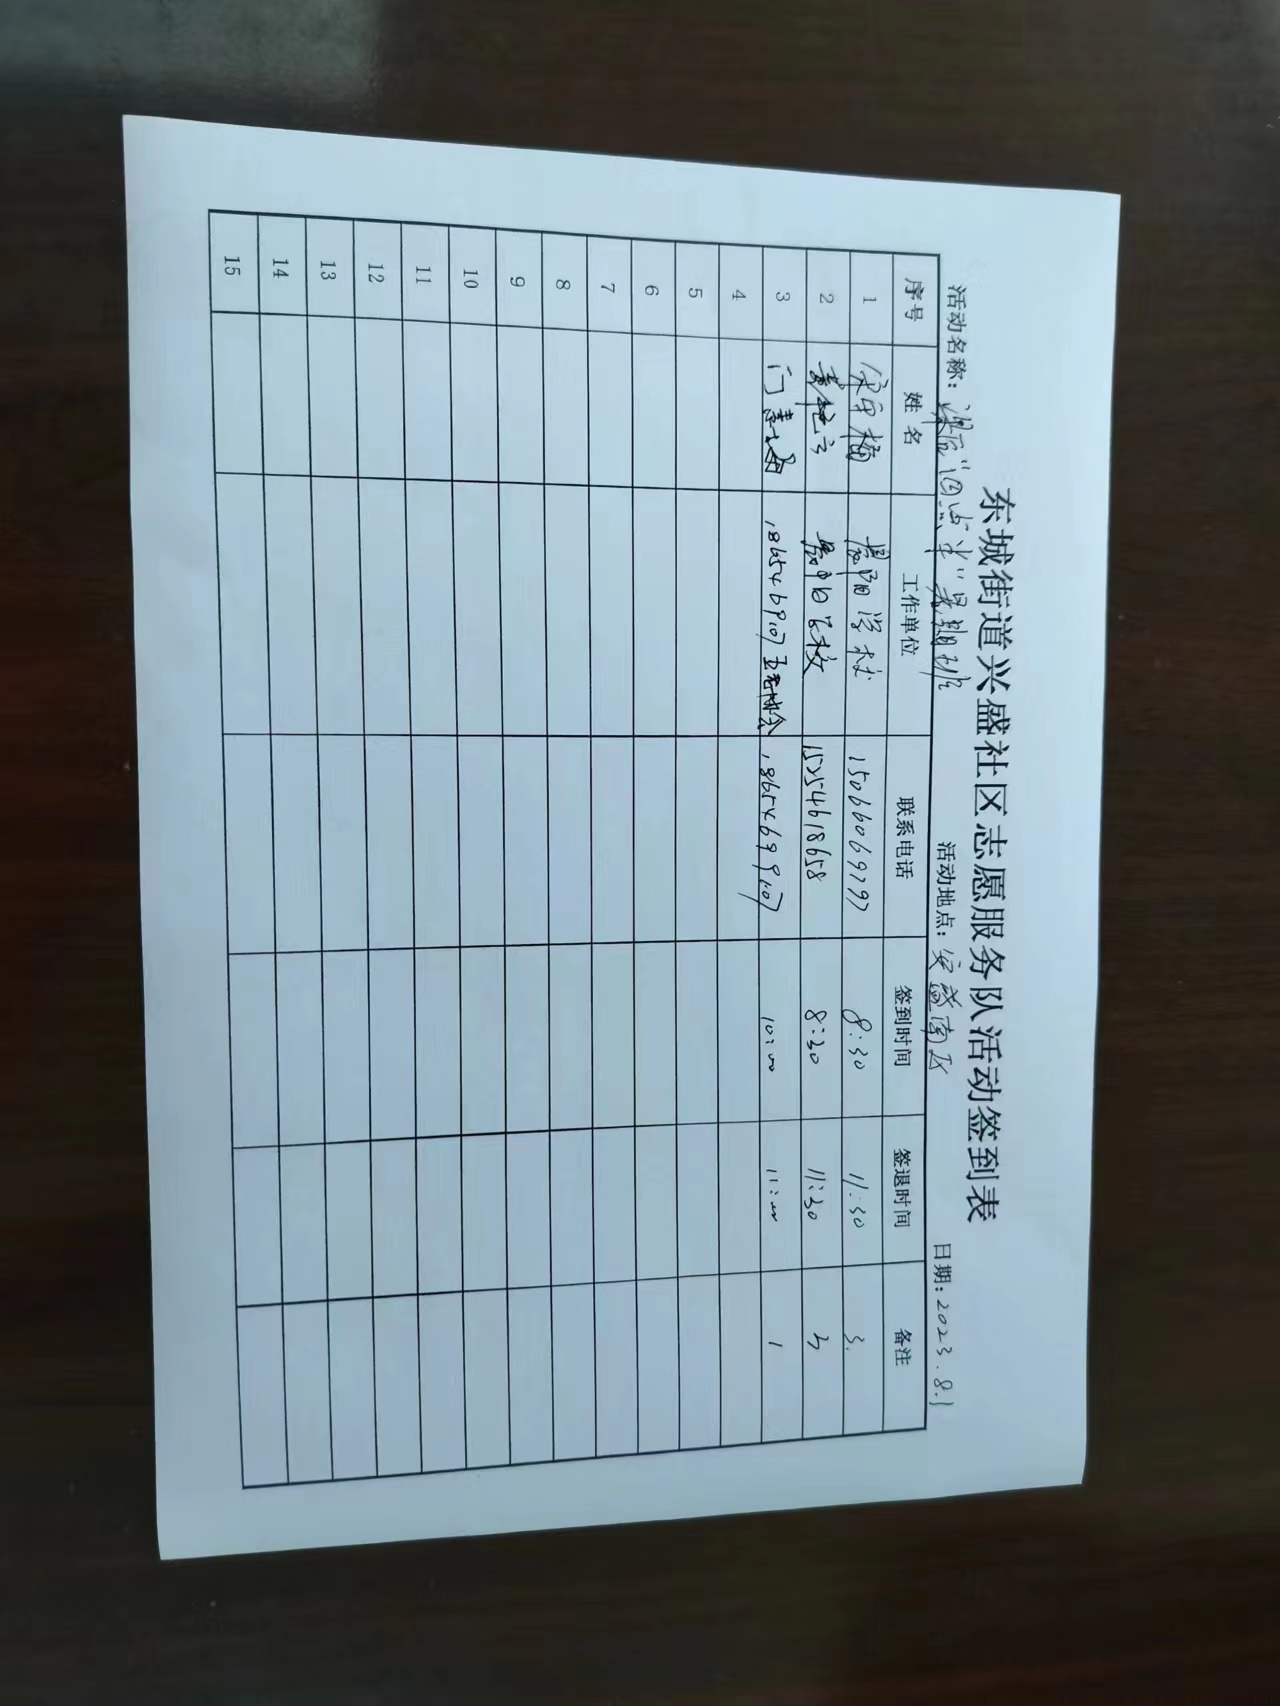 东城街道兴盛社区志愿服务队活动签到表
活动名称：课后"四点半"暑期班 活动地点：安盛南区 日期：2023.8.1
序号 姓名 工作单位 联系电话 签到时间 签退时间 备注
1 景阳学校 15066069797 8:30 11:30 3.
2 景阳学校 15254618658 8:30 11:30 3
3 门 五老协会 18654699107 10:00 11:00 1
4
5
6
7
8
9
10
11
12
13
14
15